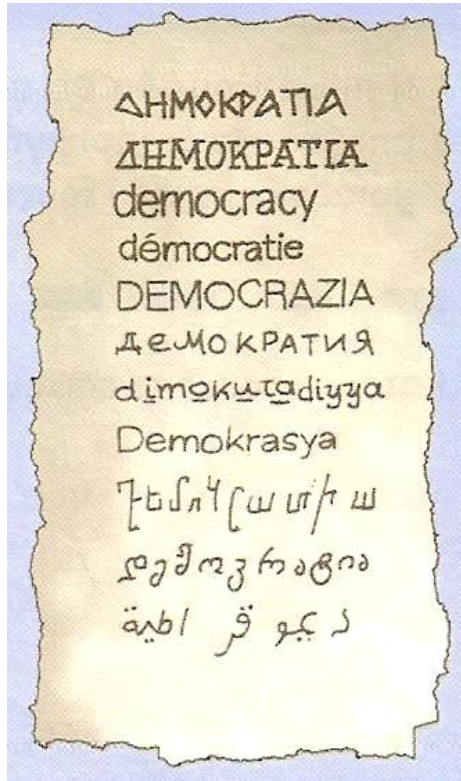 ΔΗΜΟΚΡΑΤΙΑ
ΔΗΜΟΚΡΑΤΙΑ
democracy
démocratie
DEMOCRAZIA
ДеМОКРАТИЯ
dimokuradiyya
Demokrasya
Դեմոկրատիա
დემოკრატია
ديموقراطية